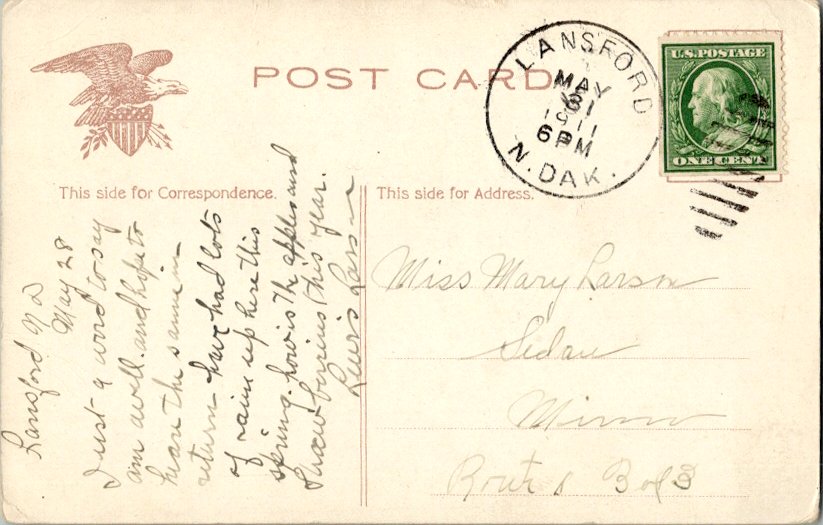 POST CARD
LANSFORD
MAY
31
1911
6 PM
N. DAK.
U.S. POSTAGE
ONE CENT
This side for Correspondence.
This side for Address.
Lansford ND
May 28
Just a word to say
am well and hope to
hear the same in
return have had lots
of rain up here this
spring. how is the apples and
Straw buries this year.
Lewis Larson
Miss Mary Larson
Sedan
Minn
Route 1 Box 3